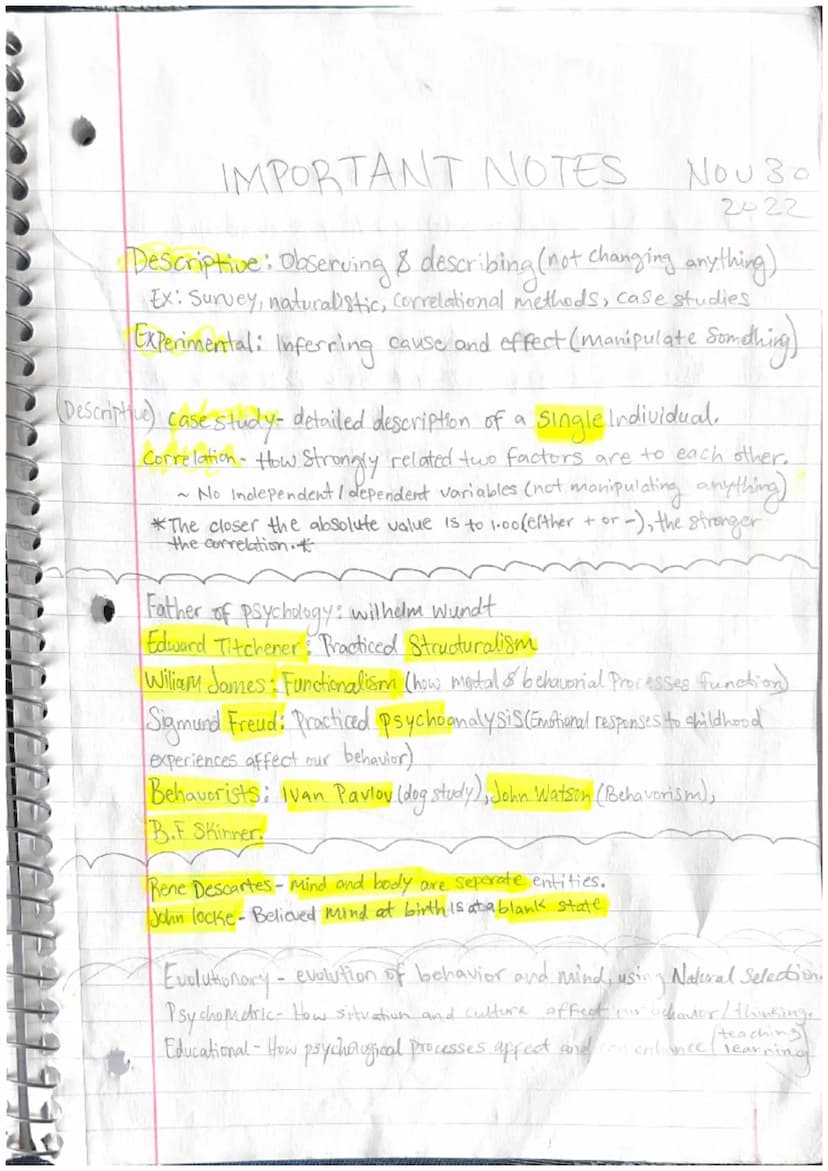 IMPORTANT NOTES Nov 30
2022
Descriptive: Observing & describing (not changing anything)
Ex: Survey, naturalistic, correlational methods, case studies
Experimental: Inferring cause and effect (manipulate Something)
(Descriptive) case study- detailed description of a single individual.
Correlation - How Strongly related two factors are to each other.
~ No Independent / dependent variables (not manipulating anything)
*The closer the absolute value is to 1.00 (either + or -), the stronger
the correlation.*
Father of psychology: wilhelm wundt
Edward Titchener: Practiced Structuralism
Wiliam James: Functionalism (how mental & behavorial Processes function)
Sigmund Freud: Practiced psychoanalysis (Emotional responses to childhood
experiences affect our behavior)
Behavorists: Ivan Pavlov (dog study), John Watson (Behavorism),
B.F Skinner.
Rene Descartes - Mind and body are seperate entities.
John locke - Believed Mind at birth is at a blank state
Evolutionary - evolution of behavior and mind, using Natural Selection.
Psychometric- How situation and culture affect our behavior / thinking.
Educational - How psychological processes affect and can enhance / teaching
learning